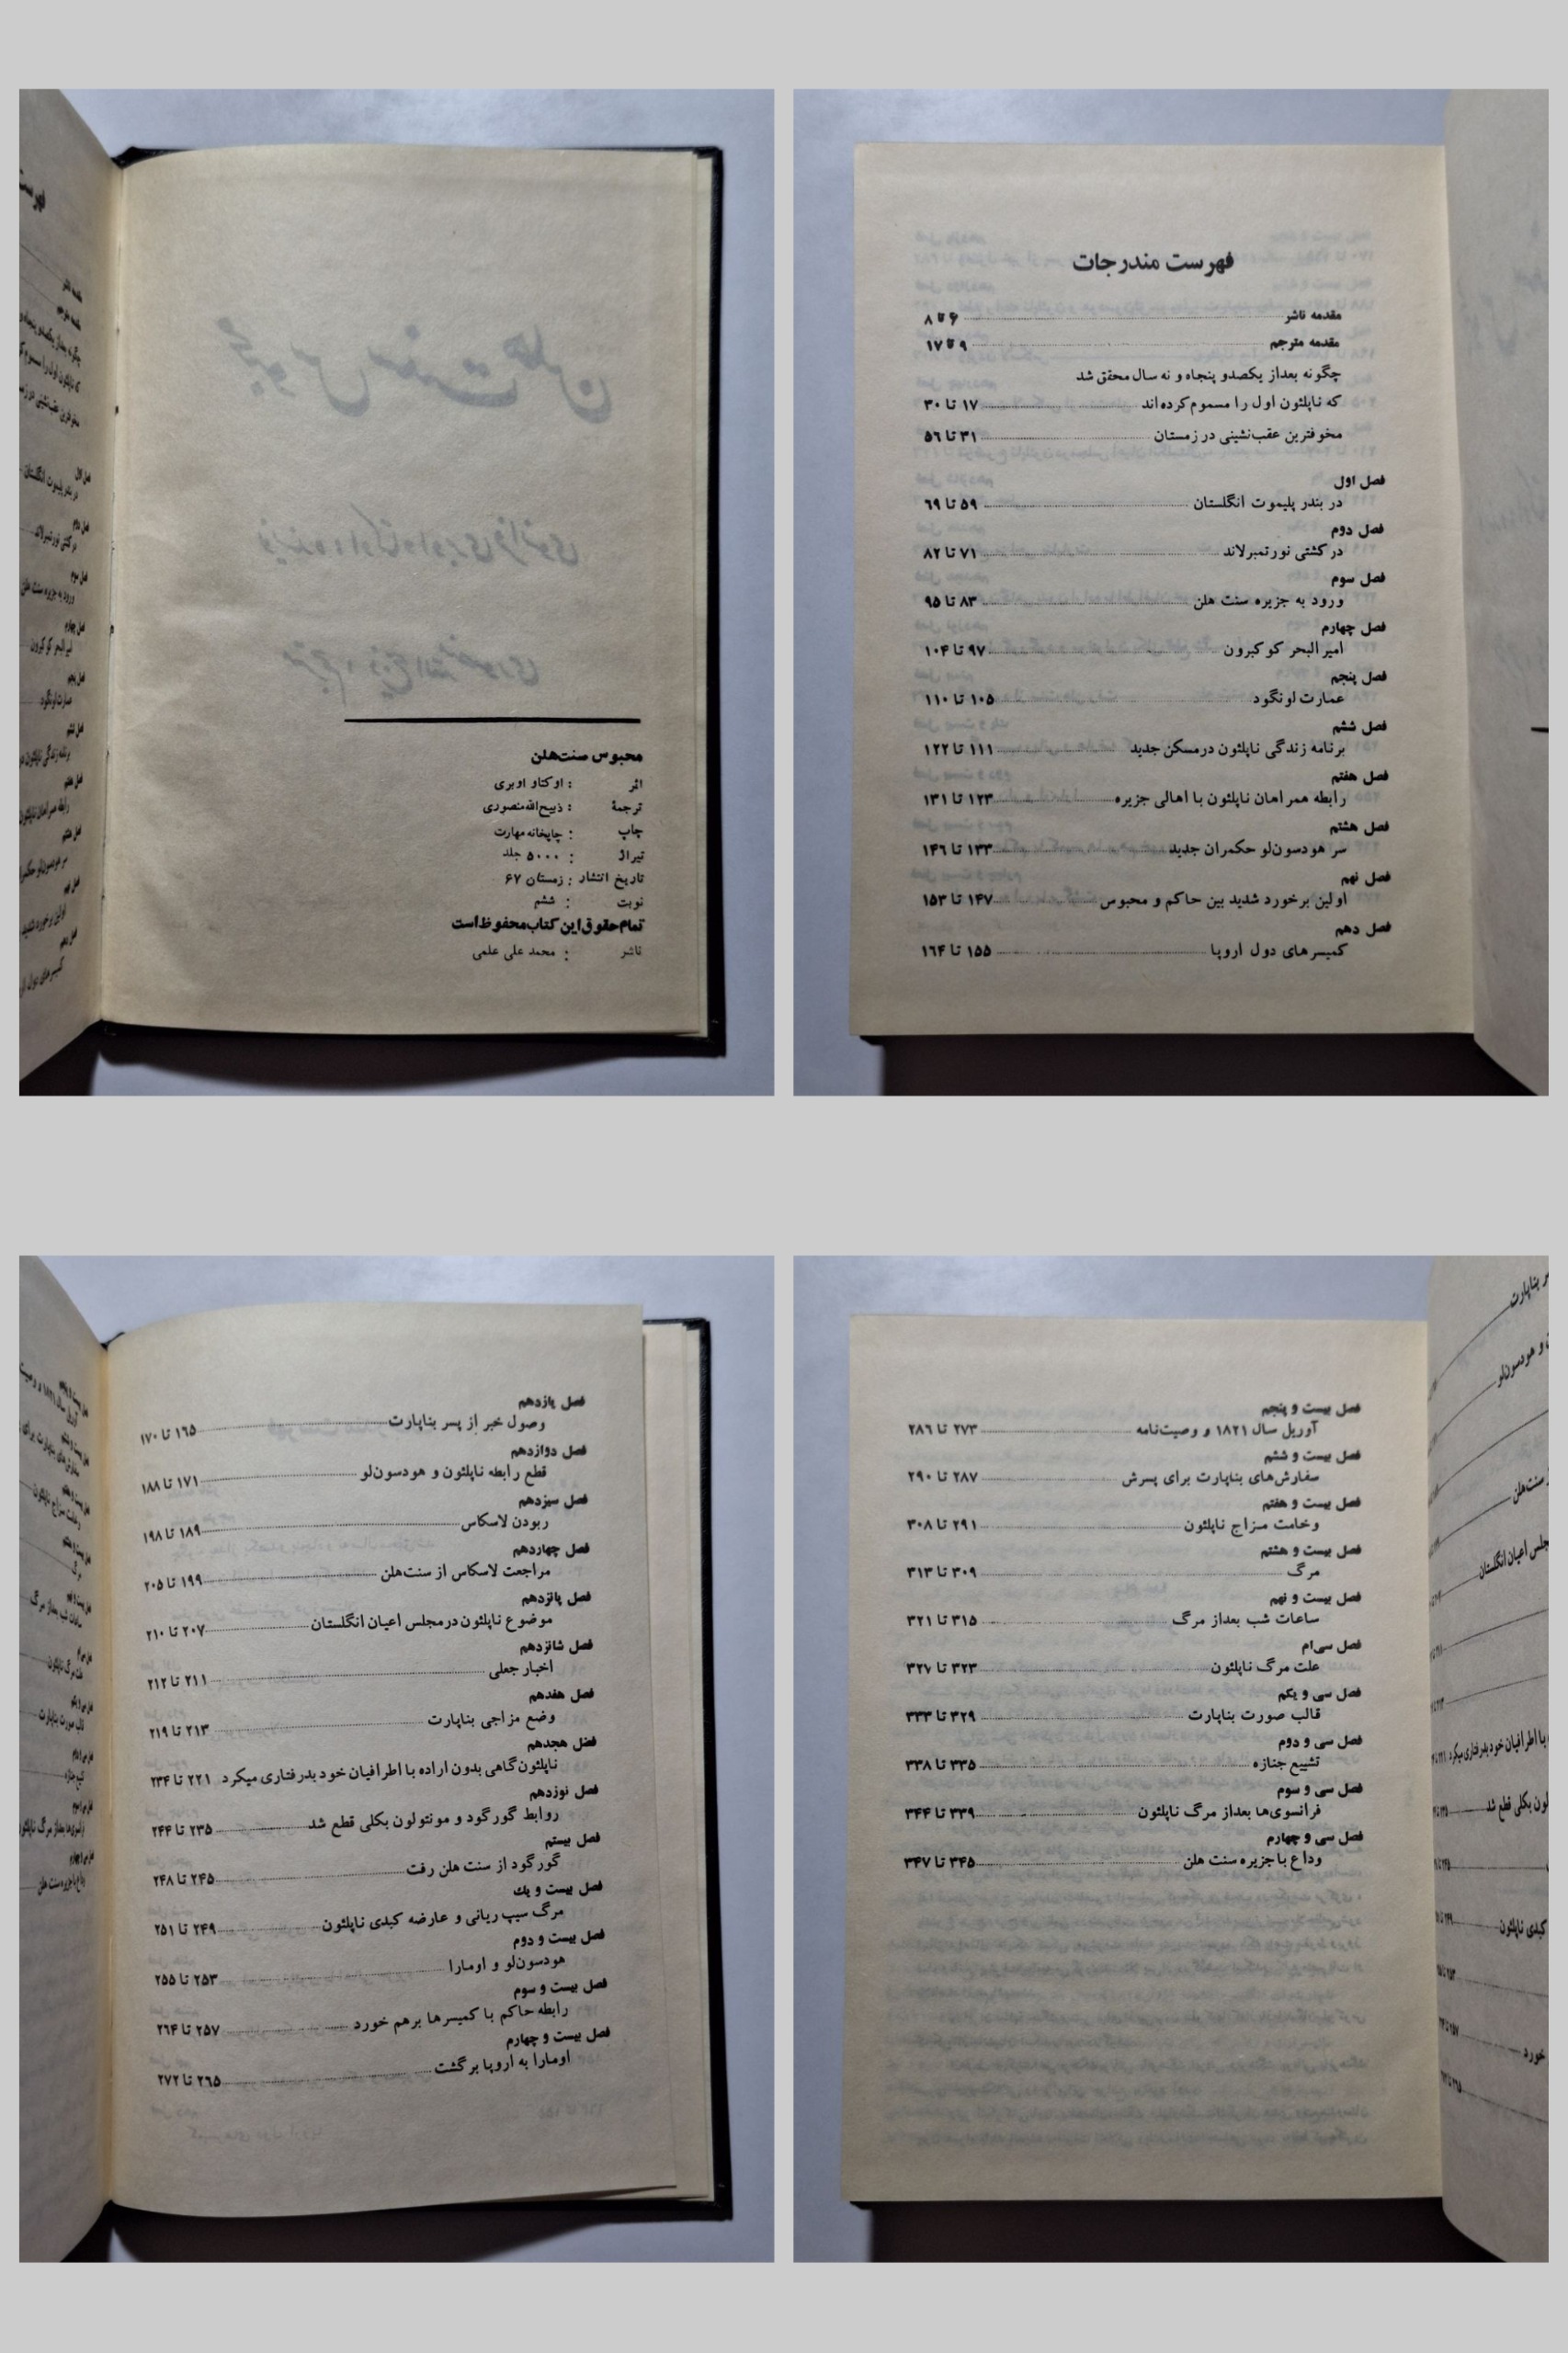 محبوس سنت‌هلن
اثر : اوکتاو اوبری
ترجمهٔ : ذبیح‌الله منصوری
چاپ : چاپخانه مهارت
تیراژ : ۵۰۰۰ جلد
تاریخ انتشار : زمستان ۶۷
نوبت : ششم
تمام حقوق این کتاب محفوظ است
ناشر : محمد علی علمی
فهرست مندرجات
مقدمه ناشر ۶ تا ۸
مقدمه مترجم ۹ تا ۱۷
چگونه بعداز یکصدو پنجاه و نه سال محقق شد
که ناپلئون اول را مسموم کرده‌اند ۱۷ تا ۳۰
مخوفترین عقب‌نشینی در زمستان ۳۱ تا ۵۶
فصل اول
در بندر پلیموت انگلستان ۵۹ تا ۶۹
فصل دوم
در کشتی نورتمبرلاند ۷۱ تا ۸۲
فصل سوم
ورود به جزیره سنت هلن ۸۳ تا ۹۵
فصل چهارم
امیرالبحر کوکبرون ۹۷ تا ۱۰۴
فصل پنجم
عمارت اونگود ۱۰۵ تا ۱۱۰
فصل ششم
برنامه زندگی ناپلئون درمسکن جدید ۱۱۱ تا ۱۲۲
فصل هفتم
رابطه همراهان ناپلئون با اهالی جزیره ۱۲۳ تا ۱۳۱
فصل هشتم
سر هودسون‌لو حکمران جدید ۱۳۳ تا ۱۴۶
فصل نهم
اولین برخورد شدید بین حاکم و محبوس ۱۴۷ تا ۱۵۳
فصل دهم
کمیسرهای دول اروپا ۱۵۵ تا ۱۶۴
فصل یازدهم
وصول خبر از پسر بناپارت ۱۶۵ تا ۱۷۰
فصل دوازدهم
قطع رابطه ناپلئون و هودسون‌لو ۱۷۱ تا ۱۸۸
فصل سیزدهم
ربودن لاسکاس ۱۸۹ تا ۱۹۸
فصل چهاردهم
مراجعت لاسکاس از سنت‌هلن ۱۹۹ تا ۲۰۵
فصل پانزدهم
موضوع ناپلئون درمجلس اعیان انگلستان ۲۰۷ تا ۲۱۰
فصل شانزدهم
اخبار جعلی ۲۱۱ تا ۲۱۲
فصل هفدهم
وضع مزاجی بناپارت ۲۱۳ تا ۲۱۹
فصل هجدهم
ناپلئون گاهی بدون اراده با اطرافیان خود بدرفتاری میکرد ۲۲۱ تا ۲۳۴
فصل نوزدهم
روابط گورگود و مونتولون بکلی قطع شد ۲۳۵ تا ۲۴۴
فصل بیستم
گورگود از سنت هلن رفت ۲۴۵ تا ۲۴۸
فصل بیست و یك
مرگ سیپ ریانی و عارضه کبدی ناپلئون ۲۴۹ تا ۲۵۱
فصل بیست و دوم
هودسون‌لو و اومارا ۲۵۳ تا ۲۵۵
فصل بیست و سوم
رابطه حاکم با کمیسرها برهم خورد ۲۵۷ تا ۲۶۴
فصل بیست و چهارم
اومارا به اروپا برگشت ۲۶۵ تا ۲۷۲
فصل بیست و پنجم
آوریل سال ۱۸۲۱ و وصیت‌نامه ۲۷۳ تا ۲۸۶
فصل بیست و ششم
سفارش‌های بناپارت برای پسرش ۲۸۷ تا ۲۹۰
فصل بیست و هفتم
وخامت مزاج ناپلئون ۲۹۱ تا ۳۰۸
فصل بیست و هشتم
مرگ ۳۰۹ تا ۳۱۳
فصل بیست و نهم
ساعات شب بعداز مرگ ۳۱۵ تا ۳۲۱
فصل سی‌ام
علت مرگ ناپلئون ۳۲۳ تا ۳۲۷
فصل سی و یکم
قالب صورت بناپارت ۳۲۹ تا ۳۳۳
فصل سی و دوم
تشییع جنازه ۳۳۵ تا ۳۳۸
فصل سی و سوم
فرانسوی‌ها بعداز مرگ ناپلئون ۳۳۹ تا ۳۴۴
فصل سی و چهارم
وداع باجزیره سنت هلن ۳۴۵ تا ۳۴۷